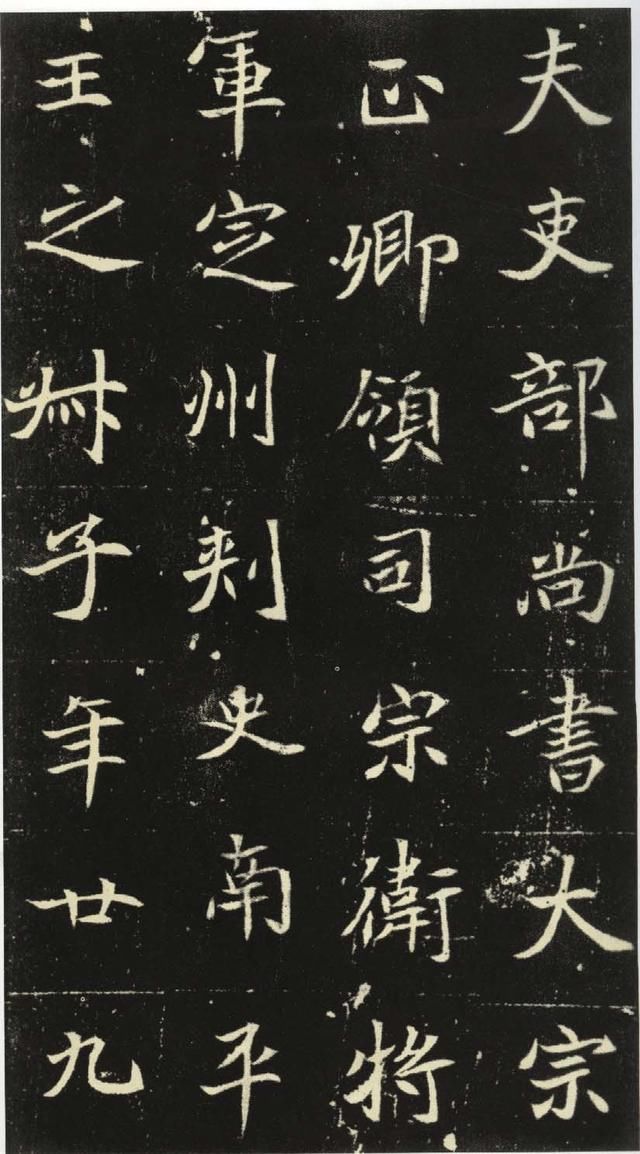 夫吏部尚書大宗
正卿領司宗衛將
軍定州刺史南平
王之叔子年廿九